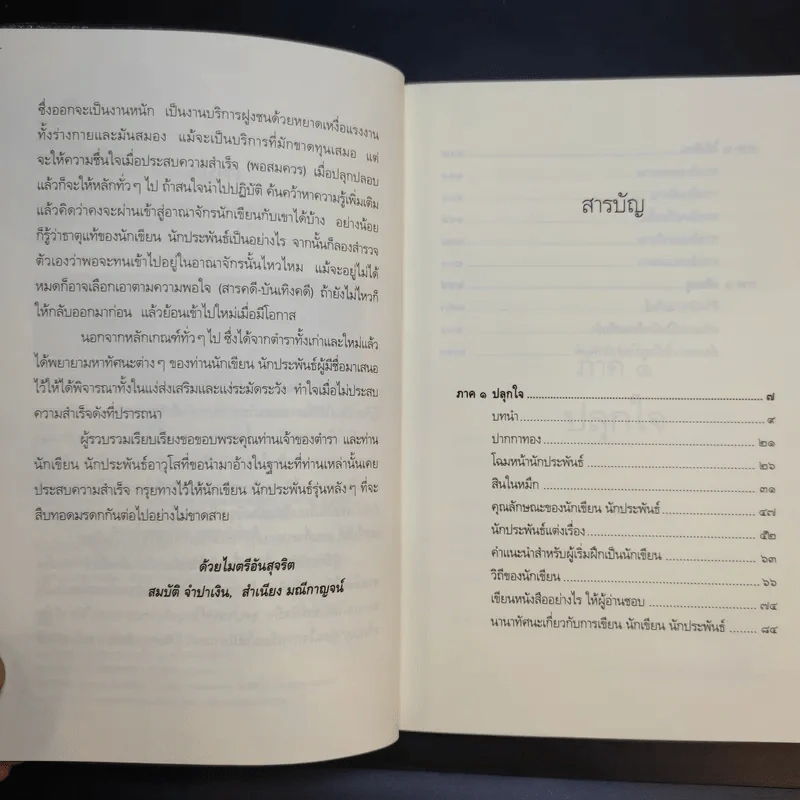 ซึ่งออกจะเป็นงานหนัก เป็นงานบริการฝูงชนด้วยหยาดเหงื่อแรงงาน
ทั้งร่างกายและมันสมอง แม้จะเป็นบริการที่มักขาดทุนเสมอ แต่
จะให้ความชื่นใจเมื่อประสบความสำเร็จ (พอสมควร) เมื่อปลุกปลอบ
แล้วก็จะให้หลักทั่วๆ ไป ถ้าสนใจนำไปปฏิบัติ ค้นคว้าหาความรู้เพิ่มเติม
แล้วคิดว่าคงจะผ่านเข้าสู่อาณาจักรนักเขียนกับเขาได้บ้าง อย่างน้อย
ก็รู้ว่าธาตุแท้ของนักเขียน นักประพันธ์เป็นอย่างไร จากนั้นก็ลองสำรวจ
ตัวเองว่าพอจะทนเข้าไปอยู่ในอาณาจักรนั้นไหวไหม แม้จะอยู่ไม่ได้
หมดก็อาจเลือกเอาตามความพอใจ (สารคดี-บันเทิงคดี) ถ้ายังไม่ไหวก็
ให้กลับออกมาก่อน แล้วย้อนเข้าไปใหม่เมื่อมีโอกาส
นอกจากหลักเกณฑ์ทั่วๆ ไป ซึ่งได้จากตำราทั้งเก่าและใหม่แล้ว
ได้พยายามหาทัศนะต่างๆ ของท่านนักเขียน นักประพันธ์ผู้มีชื่อมาเสนอ
ไว้ให้ได้พิจารณาทั้งในแง่ส่งเสริมและแง่ระมัดระวัง ทำใจเมื่อไม่ประสบ
ความสำเร็จดังที่ปรารถนา
ผู้รวบรวมเรียบเรียงขอขอบพระคุณท่านเจ้าของตำรา และท่าน
นักเขียน นักประพันธ์อาวุโสที่ขอนำมาอ้างในฐานะที่ท่านเหล่านั้นเคย
ประสบความสำเร็จ กรุยทางไว้ให้นักเขียน นักประพันธ์รุ่นหลังๆ ที่จะ
สืบทอดมรดกกันต่อไปอย่างไม่ขาดสาย
ด้วยไมตรีอันสุจริต
สมบัติ จำปาเงิน, สำเนียง มณีกาญจน์
สารบัญ
ภาค ๑ ปลุกใจ ๗
บทนำ ๙
ปากกาทอง ๒๑
โฉมหน้านักประพันธ์ ๒๖
สินในหมึก ๓๑
คุณลักษณะของนักเขียน นักประพันธ์ ๔๗
นักประพันธ์แต่งเรื่อง ๕๒
คำแนะนำสำหรับผู้เริ่มฝึกเป็นนักเขียน ๖๓
วิถีของนักเขียน ๖๖
เขียนหนังสืออย่างไร ให้ผู้อ่านชอบ ๗๔
นานาทัศนะเกี่ยวกับการเขียน นักเขียน นักประพันธ์ ๘๔